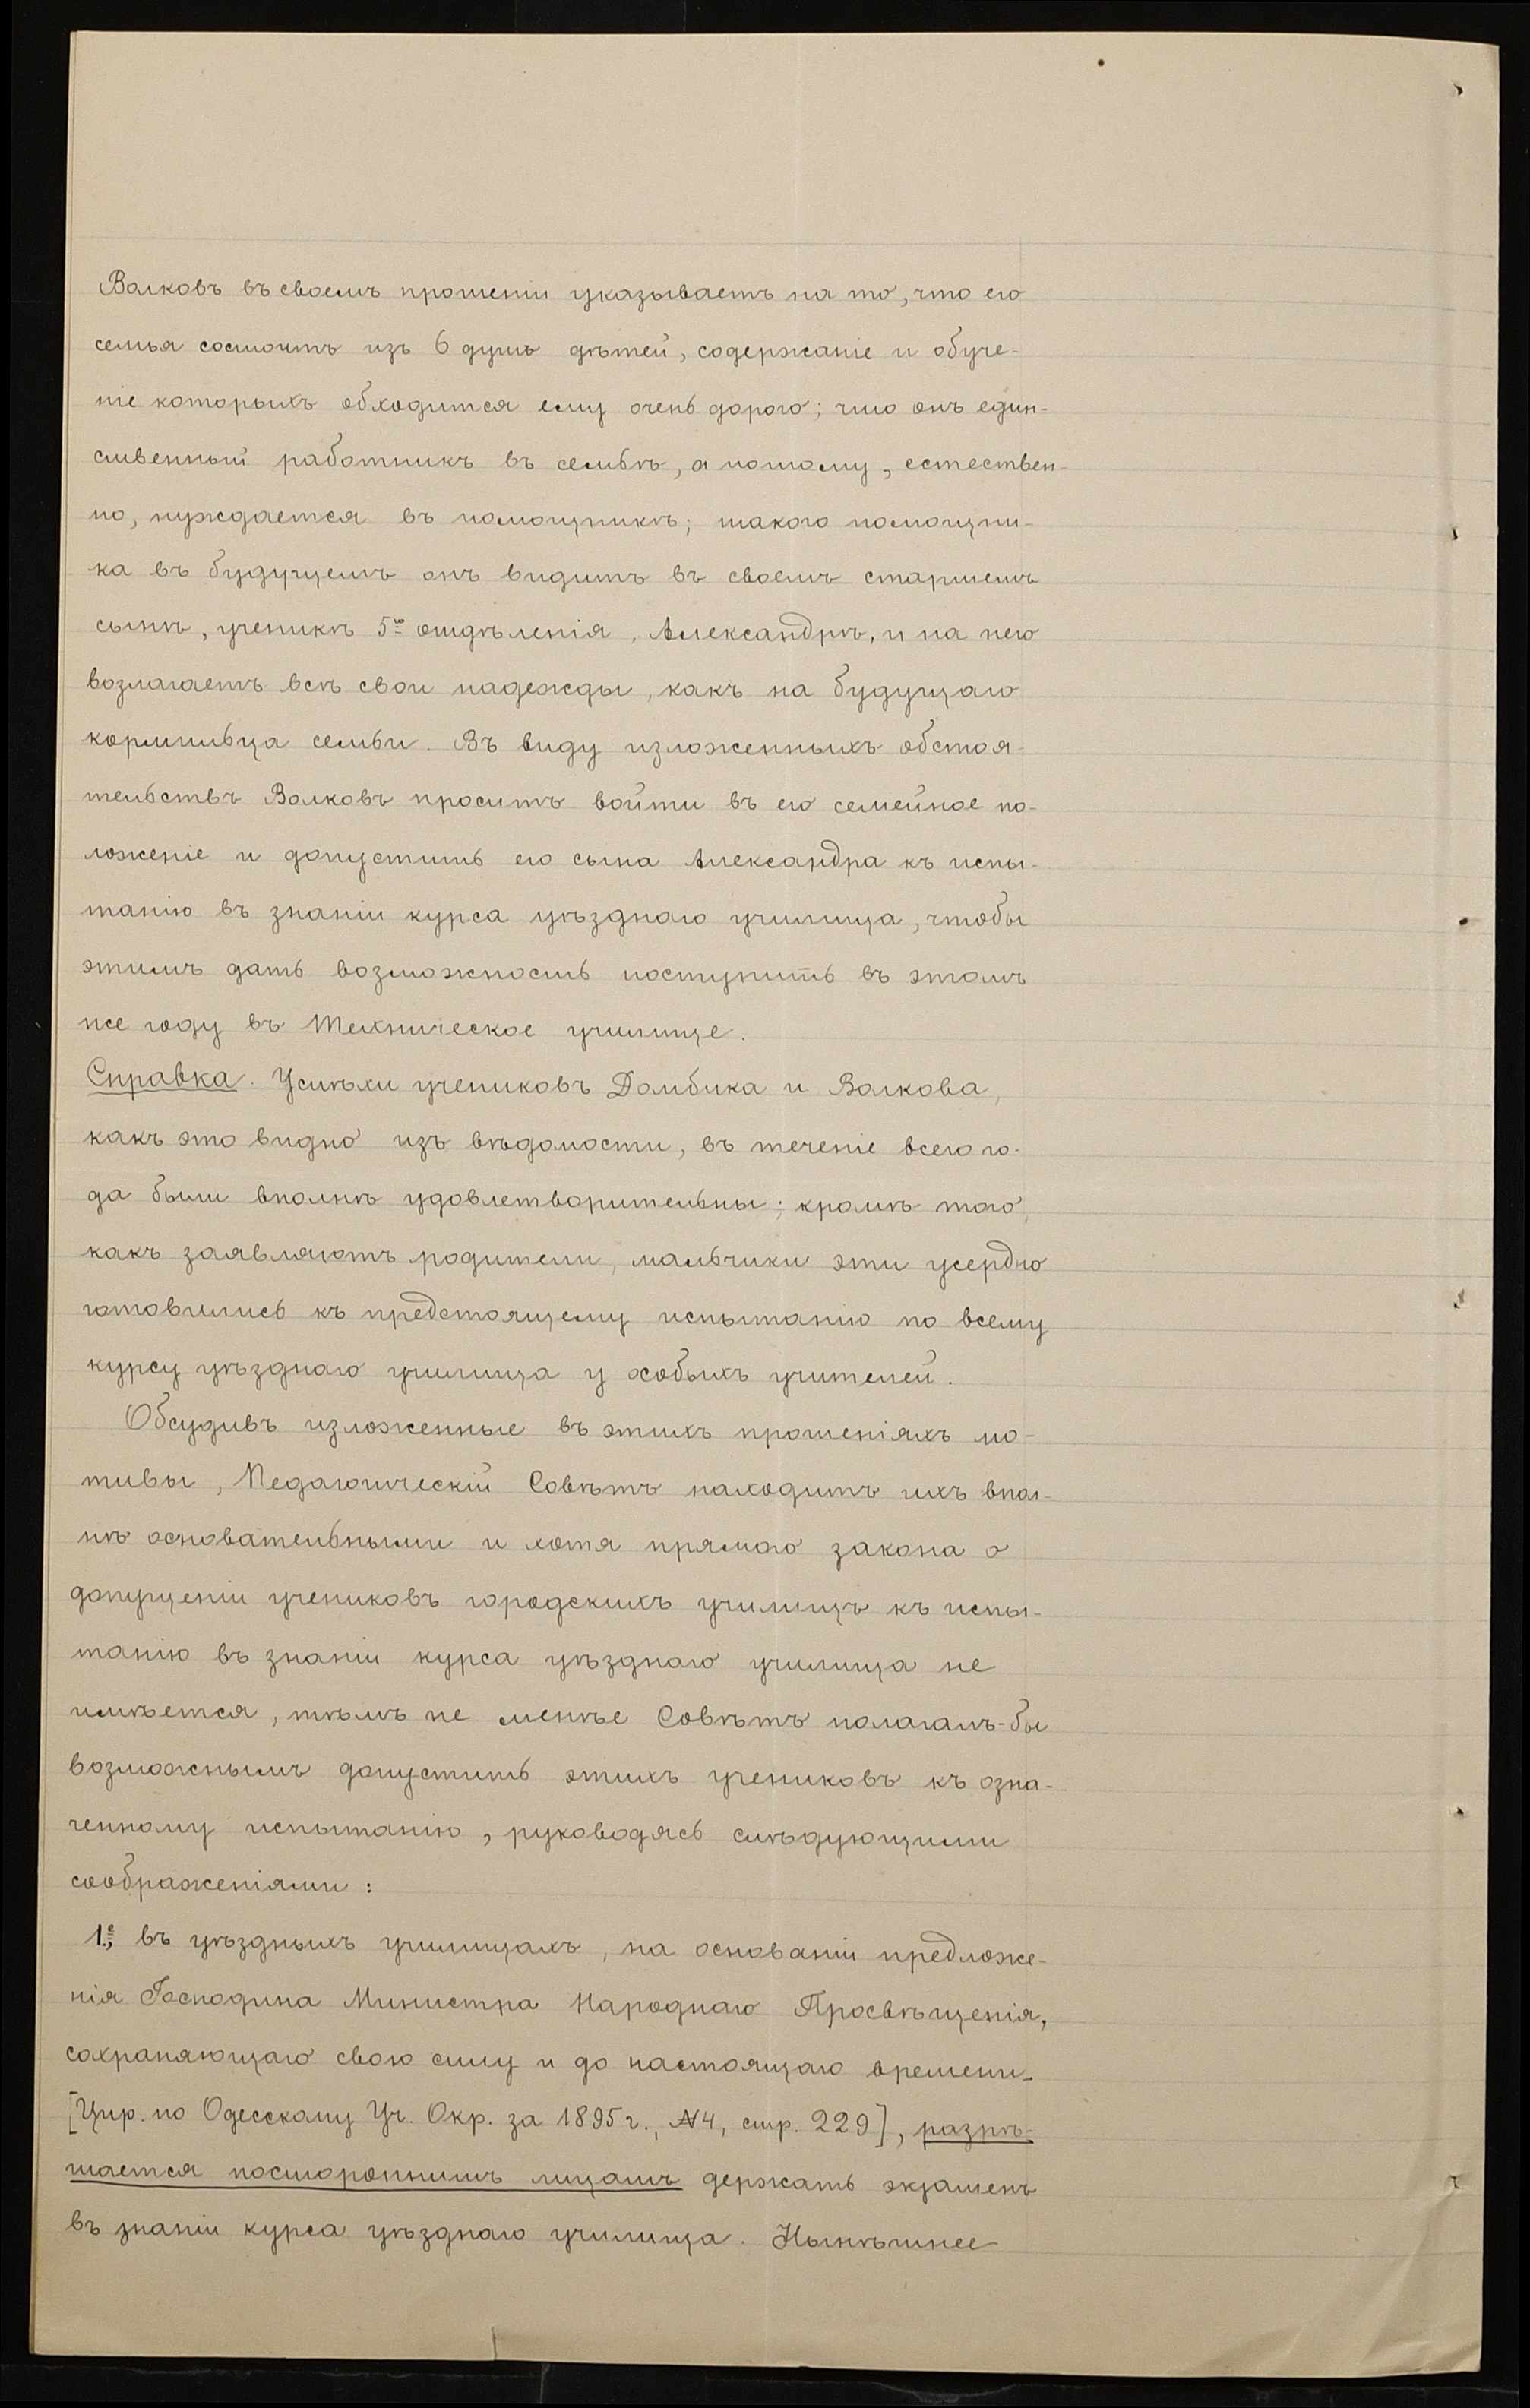 Волковъ въ своемъ прошеніи указываетъ на то, что его
семья состоитъ изъ 6 душъ дѣтей, содержаніе и обуче-
ніе которыхъ обходится ему очень дорого; что онъ един-
ственный работникъ въ семьѣ, а потому, естествен-
но, нуждается въ помощникѣ; такого помощни-
ка въ будущемъ онъ видитъ въ своемъ старшемъ
сынѣ, ученикѣ 5го отдѣленія, Александрѣ, и на него
возлагаетъ всѣ свои надежды, какъ на будущаго
кормильца семьи. Въ виду изложенныхъ обстоя-
тельствъ Волковъ проситъ войти въ его семейное по-
ложеніе и допустить его сына Александра къ испы-
танію въ знаніи курса уѣзднаго училища, чтобы
этимъ дать возможность поступить въ этомъ
же году въ Техническое училище.
Справка. Успѣхи учениковъ Домбика и Волкова,
какъ это видно изъ вѣдомости, въ теченіе всего го-
да были вполнѣ удовлетворительны; кромѣ того,
какъ заявляютъ родители, мальчики эти усердно
готовились къ предстоящему испытанію по всему
курсу уѣзднаго училища у особыхъ учителей.
Обсудивъ изложенные въ этихъ прошеніяхъ мо-
тивы, Педагогическій Совѣтъ находитъ ихъ впол-
нѣ основательными и хотя прямого закона о
допущеніи учениковъ городскихъ училищъ къ испы-
танію въ знаніи курса уѣзднаго училища не
имѣется, тѣмъ не менѣе Совѣтъ полагалъ-бы
возможнымъ допустить этихъ учениковъ къ озна-
ченному испытанію, руководясь слѣдующими
соображеніями:
1.е, въ уѣздныхъ училищахъ, на основаніи предложе-
нія Господина Министра Народнаго Просвѣщенія,
сохраняющаго свою силу и до настоящаго времени
[Цир. по Одесскому Уч. Окр. за 1895 г., №4, стр. 229], разрѣ-
шается постороннимъ лицамъ держать экзаменъ
въ знаніи курса уѣзднаго училища. Нынѣшнее